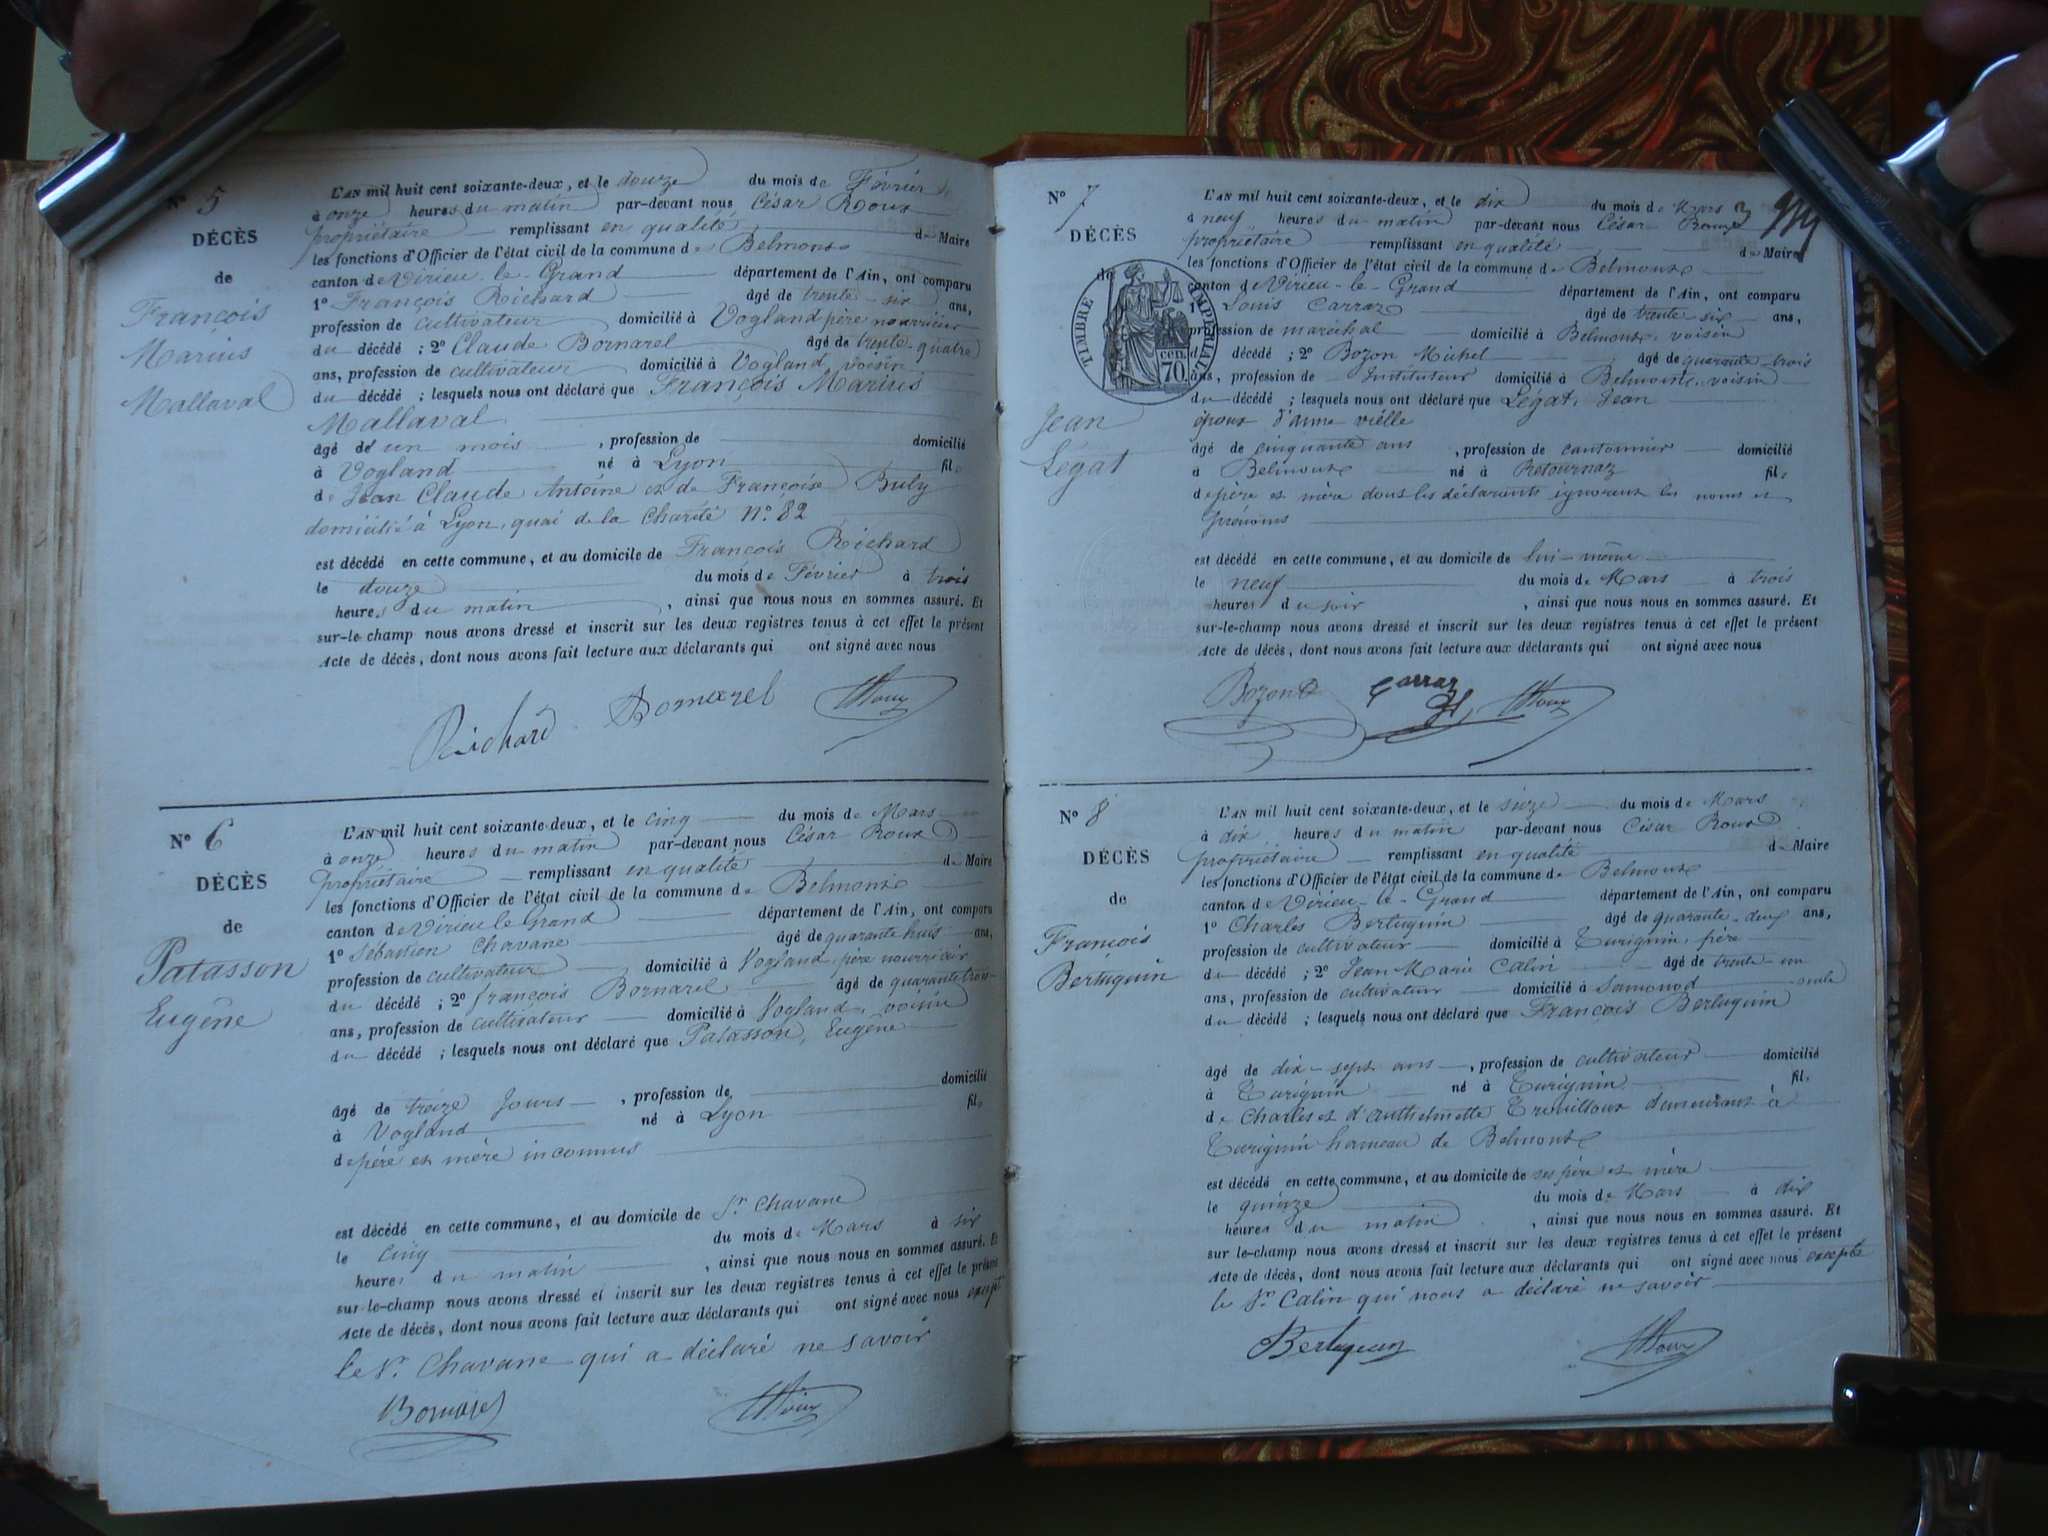 N° 5
DÉCÈS
de
François
Marius
Mallaval
L'AN mil huit cent soixante-deux, et le douze du mois de Février
à onze heures du matin par-devant nous César Roux
propriétaire remplissant en qualité de Maire
les fonctions d'Officier de l'état civil de la commune de Belmont
canton de Virieu-le-Grand département de l'Ain, ont comparu
1° François Richard âgé de trente-six ans,
profession de cultivateur domicilié à Vogland père nourricier
du décédé ; 2° Claude Bornarel âgé de trente-quatre
ans, profession de cultivateur domicilié à Vogland voisin
du décédé ; lesquels nous ont déclaré que François Marius
Mallaval
âgé de un mois , profession de domicilié
à Vogland né à Lyon fils
de Jean Claude Antoine et de Françoise Buty
domicilié à Lyon, quai de la Charité N° 82
est décédé en cette commune, et au domicile de François Richard
le douze du mois de Février à trois
heures du matin , ainsi que nous nous en sommes assuré. Et
sur-le-champ nous avons dressé et inscrit sur les deux registres tenus à cet effet le présent
Acte de décès, dont nous avons fait lecture aux déclarants qui ont signé avec nous
Richard Bornarel Roux
N° 6
DÉCÈS
de
Patasson
Eugène
L'AN mil huit cent soixante-deux, et le cinq du mois de Mars
à onze heures du matin par-devant nous César Roux
propriétaire remplissant en qualité de Maire
les fonctions d'Officier de l'état civil de la commune de Belmont
canton de Virieu le Grand département de l'Ain, ont comparu
1° Sébastien Chavane âgé de quarante huit ans,
profession de cultivateur domicilié à Vogland, père nourricier
du décédé ; 2° françois Bornarel âgé de quarante trois
ans, profession de cultivateur domicilié à Vogland, voisin
du décédé ; lesquels nous ont déclaré que Patasson, Eugène
âgé de treize jours , profession de domicilié
à Vogland né à Lyon fils
de père et mère inconnus
est décédé en cette commune, et au domicile de Sr. Chavane
le cinq du mois de Mars à six
heures du matin , ainsi que nous nous en sommes assuré. Et
sur-le-champ nous avons dressé et inscrit sur les deux registres tenus à cet effet le présent
Acte de décès, dont nous avons fait lecture aux déclarants qui ont signé avec nous excepté
le Sr. Chavane qui a déclaré ne savoir
Bornarel Roux
N° 7
DÉCÈS
de
TIMBRE IMPÉRIAL
70 cen.
Jean
Légat
L'AN mil huit cent soixante-deux, et le dix du mois de Mars
à neuf heures du matin par-devant nous César Roux
propriétaire remplissant en qualité de Maire
les fonctions d'Officier de l'état civil de la commune de Belmont
canton de Virieu-le-Grand département de l'Ain, ont comparu
1° Louis Carraz âgé de trente six ans,
profession de maréchal domicilié à Belmont, voisin
du décédé ; 2° Bozon Michel âgé de quarante-trois
ans, profession de Instituteur domicilié à Belmont, voisin
du décédé ; lesquels nous ont déclaré que Légat, Jean
époux d'anne vielle
âgé de cinquante ans , profession de cantonnier domicilié
à Belmont né à Retournaz fils
de père et mère dont les déclarants ignorent les noms et
prénoms
est décédé en cette commune, et au domicile de lui-même
le neuf du mois de Mars à trois
heures du soir , ainsi que nous nous en sommes assuré. Et
sur-le-champ nous avons dressé et inscrit sur les deux registres tenus à cet effet le présent
Acte de décès, dont nous avons fait lecture aux déclarants qui ont signé avec nous
Bozon Carraz Roux
N° 8
DÉCÈS
de
François
Bertuquin
L'AN mil huit cent soixante-deux, et le seize du mois de Mars
à dix heures du matin par-devant nous César Roux
propriétaire remplissant en qualité de Maire
les fonctions d'Officier de l'état civil de la commune de Belmont
canton de Virieu-le-Grand département de l'Ain, ont comparu
1° Charles Bertuquin âgé de quarante-deux ans,
profession de cultivateur domicilié à Turignin, père
du décédé ; 2° Jean Marie Calin âgé de trente-un
ans, profession de cultivateur domicilié à Samonod oncle
du décédé ; lesquels nous ont déclaré que François Bertuquin
âgé de dix-sept ans , profession de cultivateur domicilié
à Turignin né à Turignin fils
de Charles et d'Anthelmette demeurant à
Turignin hameau de Belmont
est décédé en cette commune, et au domicile de ses père et mère
le quinze du mois de Mars à dix
heures du matin , ainsi que nous nous en sommes assuré. Et
sur le-champ nous avons dressé et inscrit sur les deux registres tenus à cet effet le présent
Acte de décès, dont nous avons fait lecture aux déclarants qui ont signé avec nous excepté
le Sr. Calin qui nous a déclaré ne savoir
Bertuquin Roux